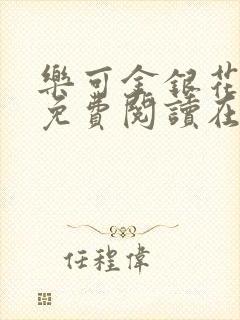 樂可金銀花
免費閱讀在
任程偉